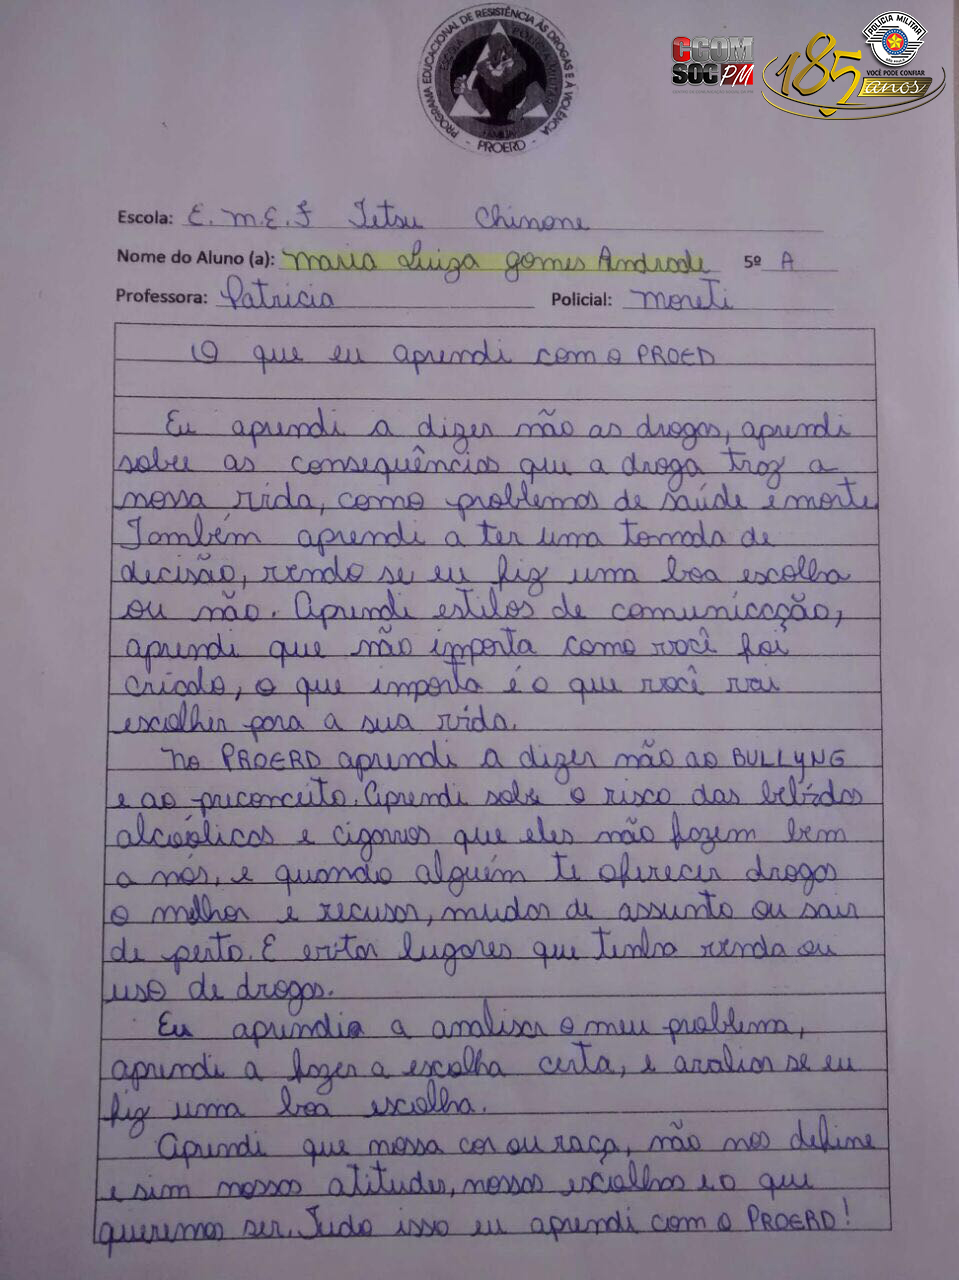 PROGRAMA EDUCACIONAL DE RESISTÊNCIA ÀS DROGAS E À VIOLÊNCIA
PROERD
CCOM
SOC PM
185 anos
POLÍCIA MILITAR
VOCÊ PODE CONFIAR
Escola: E.M.E.F Tetsu Chinone
Nome do Aluno (a): Maria Luiza Gomes Andrade 5º A
Professora: Patricia Policial: Moreti
O que eu aprendi com o PROED
Eu aprendi a dizer não as drogas, aprendi
sobre as consequências que a droga traz a
nossa vida, como problemas de saúde e morte
Também aprendi a ter uma tomada de
decisão, vendo se eu fiz uma boa escolha
ou não. Aprendi estilos de comuniccção,
aprendi que não importa como você foi
criado, o que importa é o que você vai
escolher para a sua vida.
No PROERD aprendi a dizer não ao BULLYNG
e ao preconceito. Aprendi sobre o risco das bebidas
alcoólicas e cigarros que eles não fazem bem
a nós, e quando alguém te oferecer drogas
o melhor e recusar, mudar de assunto ou sair
de perto. E evitar lugares que tenha venda ou
uso de drogas.
Eu aprendia a analisar o meu problema,
aprendi a fazer a escolha certa, e avaliar se eu
fiz uma boa escolha.
Aprendi que nossa cor ou raça, não nos define
e sim nossas atitudes, nossas escolhas e o que
queremos ser. Tudo isso eu aprendi com o PROERD!